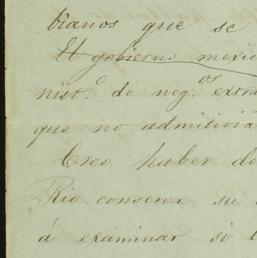 bianos que se
El gobierno mexic
nist.º de neg.os extra
que no admitiria
Creo haber de
Rio conserva su
á examinar si l